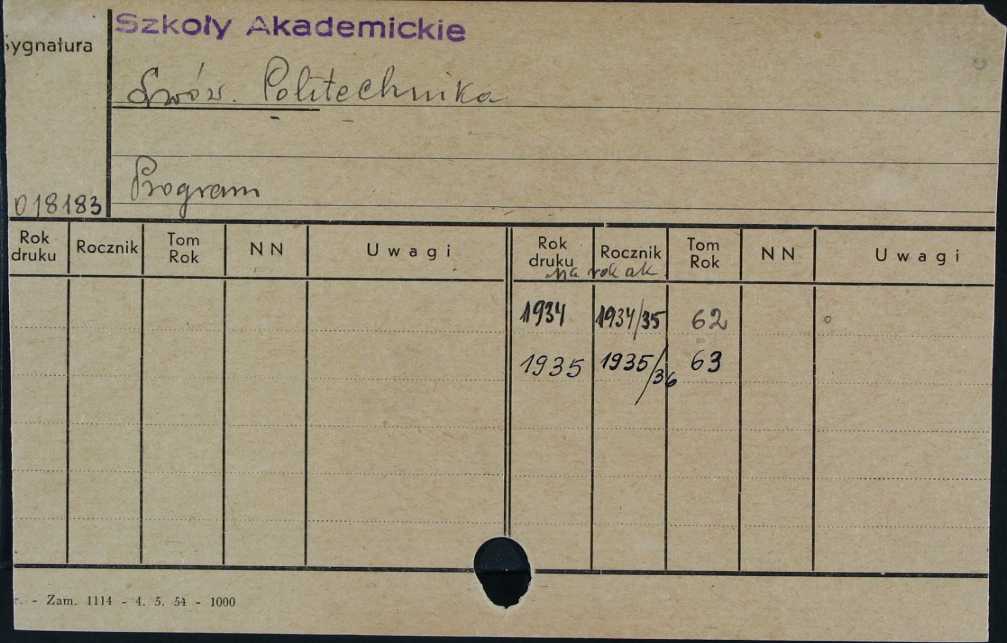 Szkoły Akademickie
Sygnatura
Lwów. Politechnika
Program
018183
Rok druku Rocznik Tom Rok NN Uwagi Rok druku Rocznik Tom Rok NN Uwagi
na rok ak
1934 1934/35 62
1935 1935/36 63
r. - Zam. 1114 - 4. 5. 54 - 1000